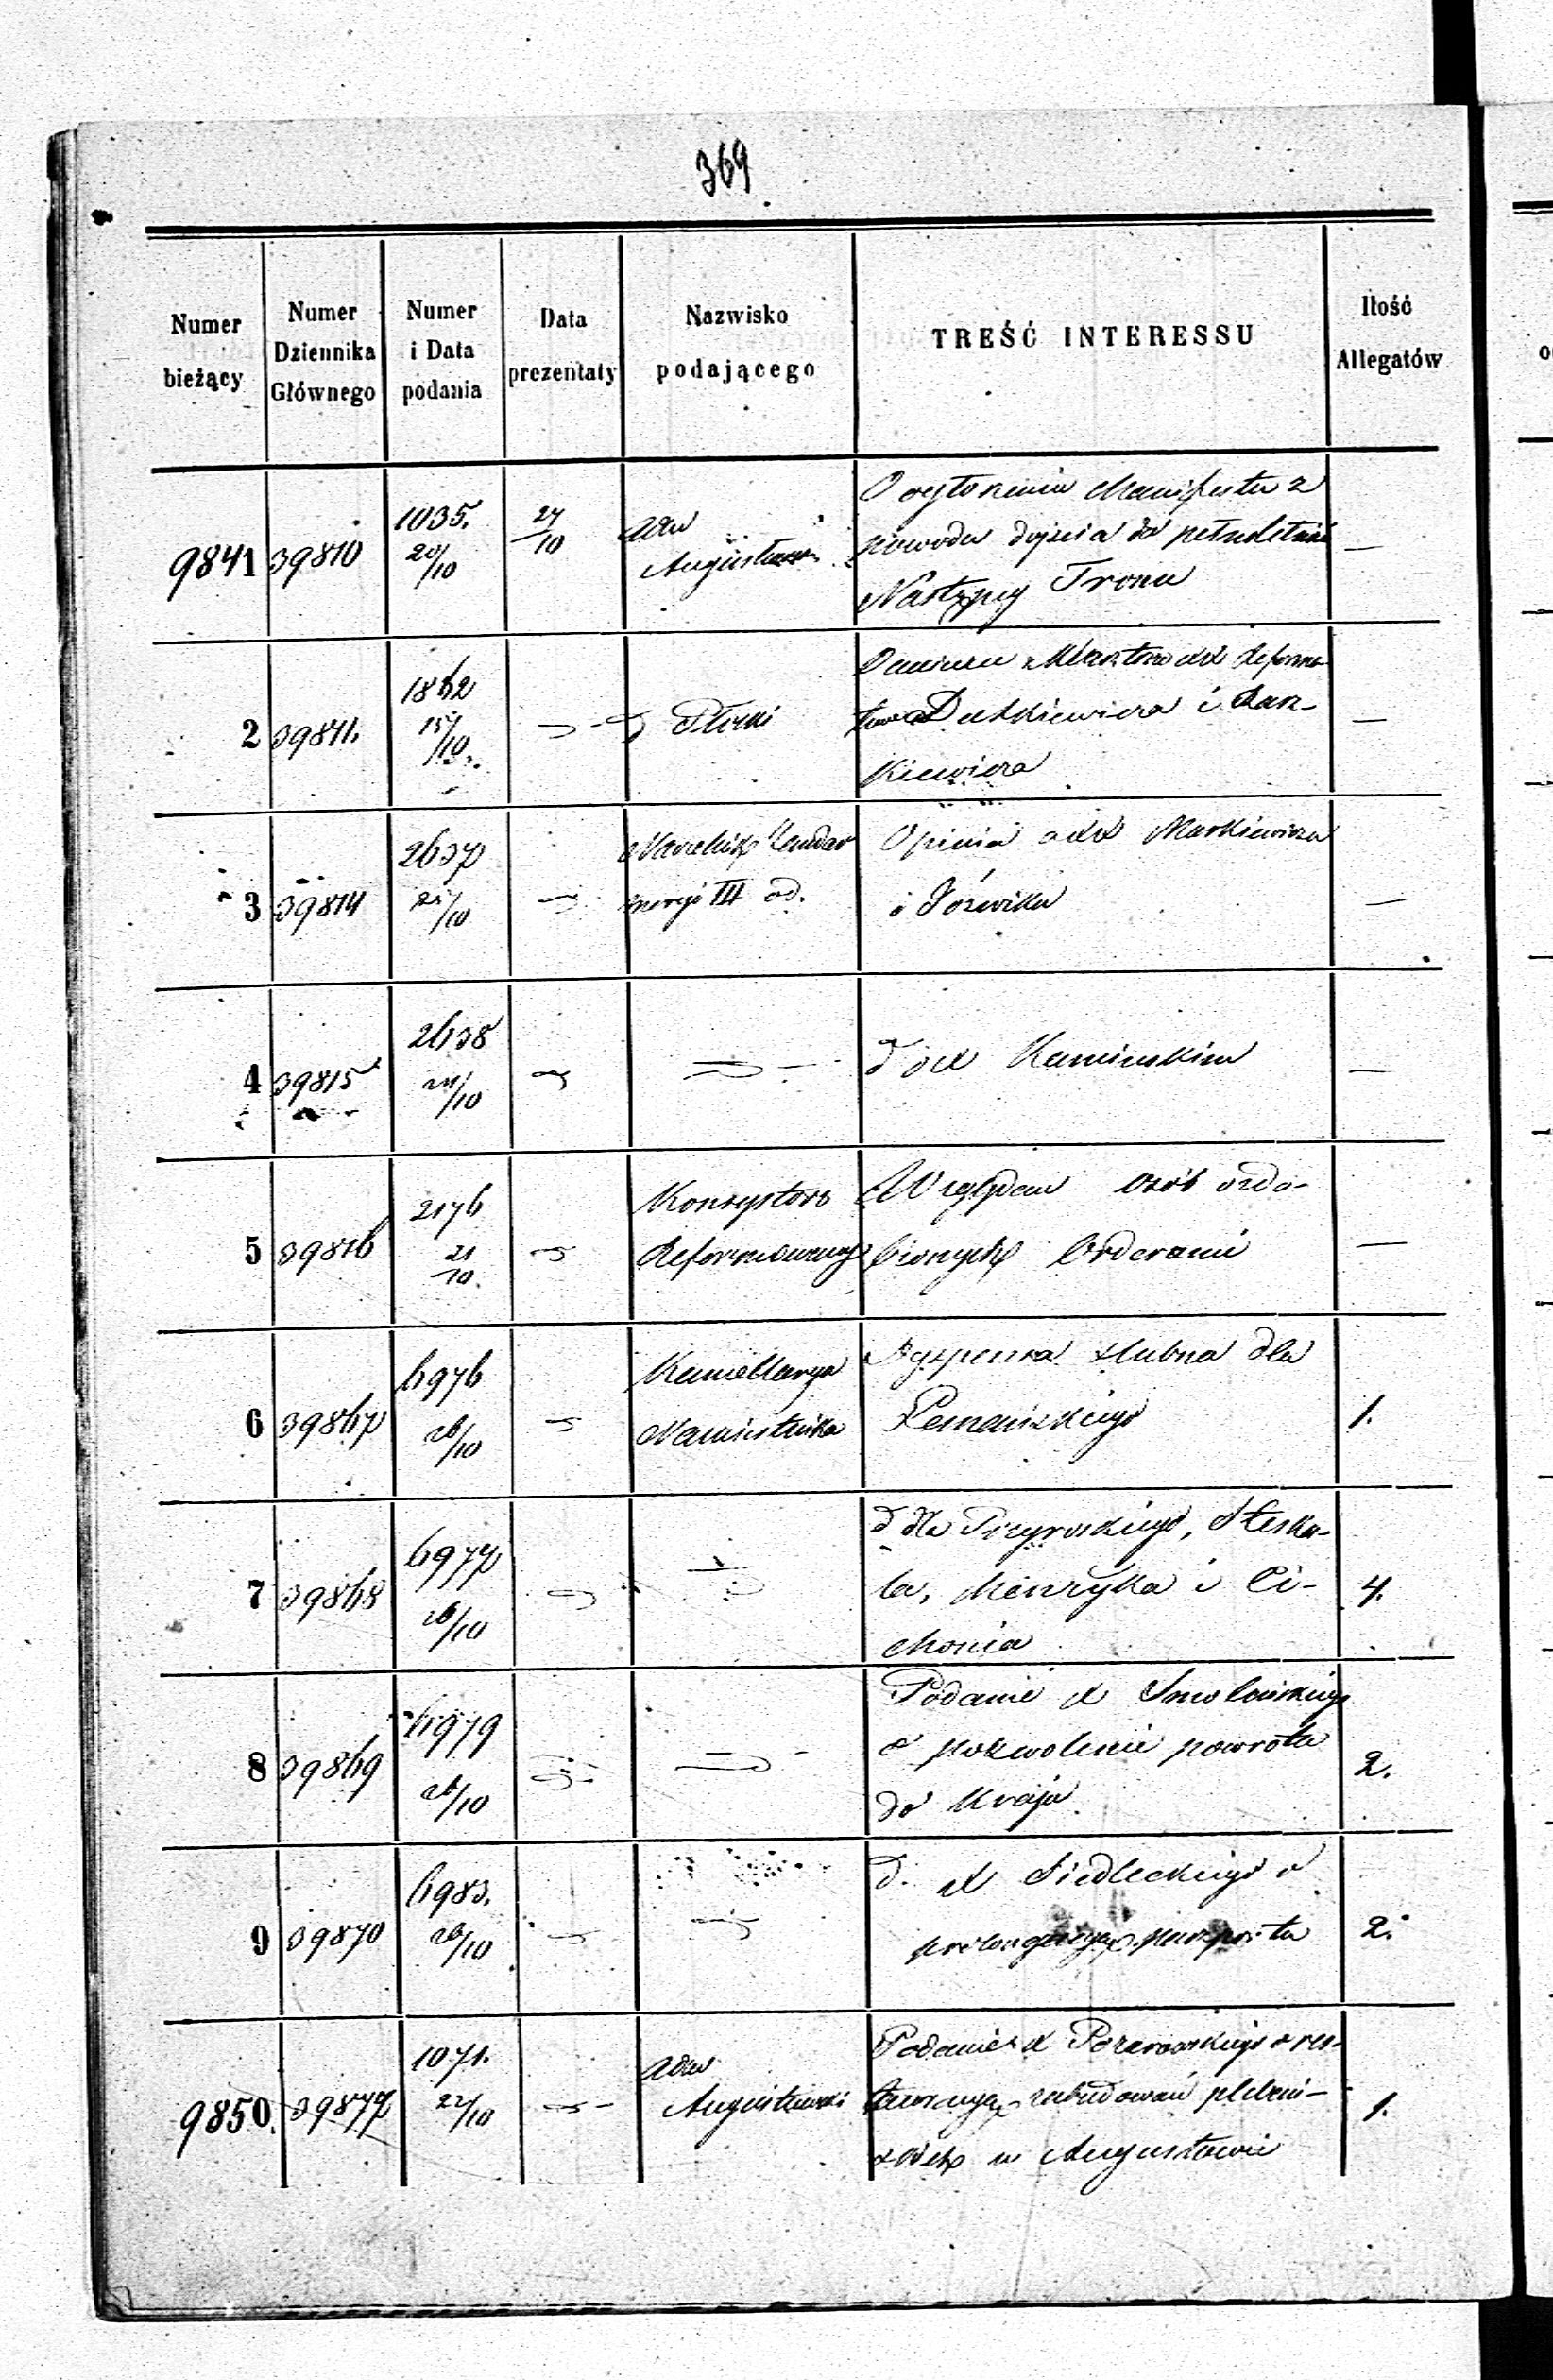 369
Numer bieżący | Numer Dziennika Głównego | Numer i Data podania | Data prezentaty | Nazwisko podającego | TREŚĆ INTERESSU | Ilość Allegatów
9841 | 39810 | 1035. 20/10 | 27/10 | Adm Augustows. | O ogłoszeniu Manifestu z
powodu dojścia do pełnoletnoś
Następcy Tronu | —
2 | 39811. | 1862 15/10. | " | Płocki | O XX Reforma-
tów Dutkiewicza i
kiewicza | —
3 | 39814 | 2637 21/10 | " | Naczelnik Żandar
meryi III od. | Opinia o XX Markiewiczu
i Jóźwiku | —
4 | 39815 | 2638 21/10 | " | " | d o X Kamińskim | —
5 | 39816 | 2176 21/10. | " | Konsystorz
Reformowany | Względem osób ozdo-
bionych Orderami | —
6 | 39867 | 6976 26/10 | " | Kancellarya
Namiestnika | Dyspensa ślubna dla | 1.
7 | 39868 | 6977 26/10 | " | " | d dla
la, Henryka i Ci-
chonia | 4.
8 | 39869 | 6979 26/10 | " | " | Podanie X Smoleńskiego
o pozwolenie powrotu
do Kraju | 2.
9 | 39870 | 6983. 26/10 | " | " | d. X Siedleckiego o
prolongacyą paszportu | 2.
9850. | 39877 | 1071. 22/10 | " | Adm
Augustowski | Podanie X o res-
tauracyą zabudowań plebań-
skich w Augustowie | 1.